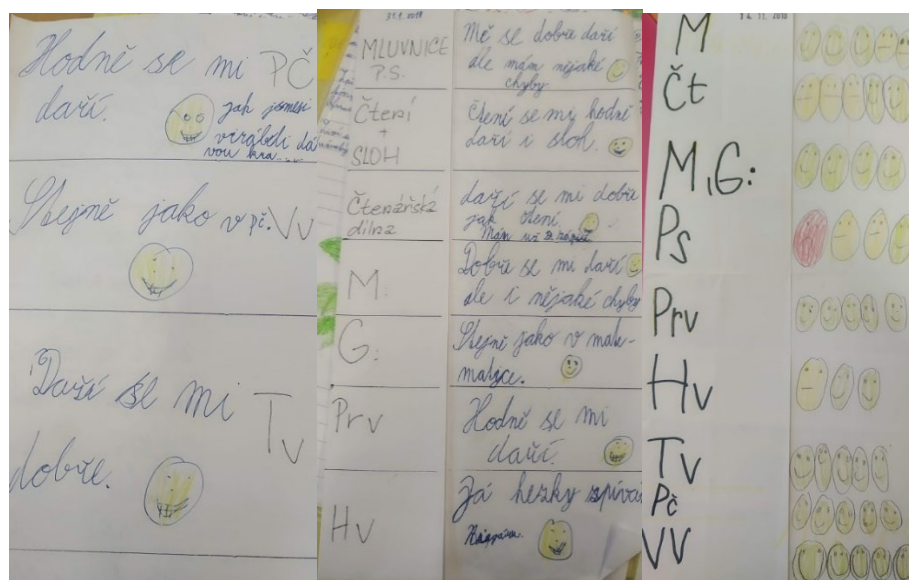 Hodně se mi PČ
daří.
jak jsme si
vyráběli
Stejně jako v pč. Vv
Daří se mi Tv
dobře.
31.1.2019
MLUVNICE
P.S.
Mě se dobře daří
ale mám nějaké
chyby.
Čtení
+
SLOH
Čtení se mi hodně
daří i sloh.
Čtenářská
dílna
daří se mi dobře
jak čtení.
Mám už 2 zápisy
M.
Dobře se mi daří
ale i nějaké chyby
G:
Stejně jako v mate-
matyce.
Prv
Hodně se mi
daří.
Hv
Já hezky spívá
14. 11. 2018
M
Čt
M,G:
Ps
Prv
Hv
Tv
Pč
VV